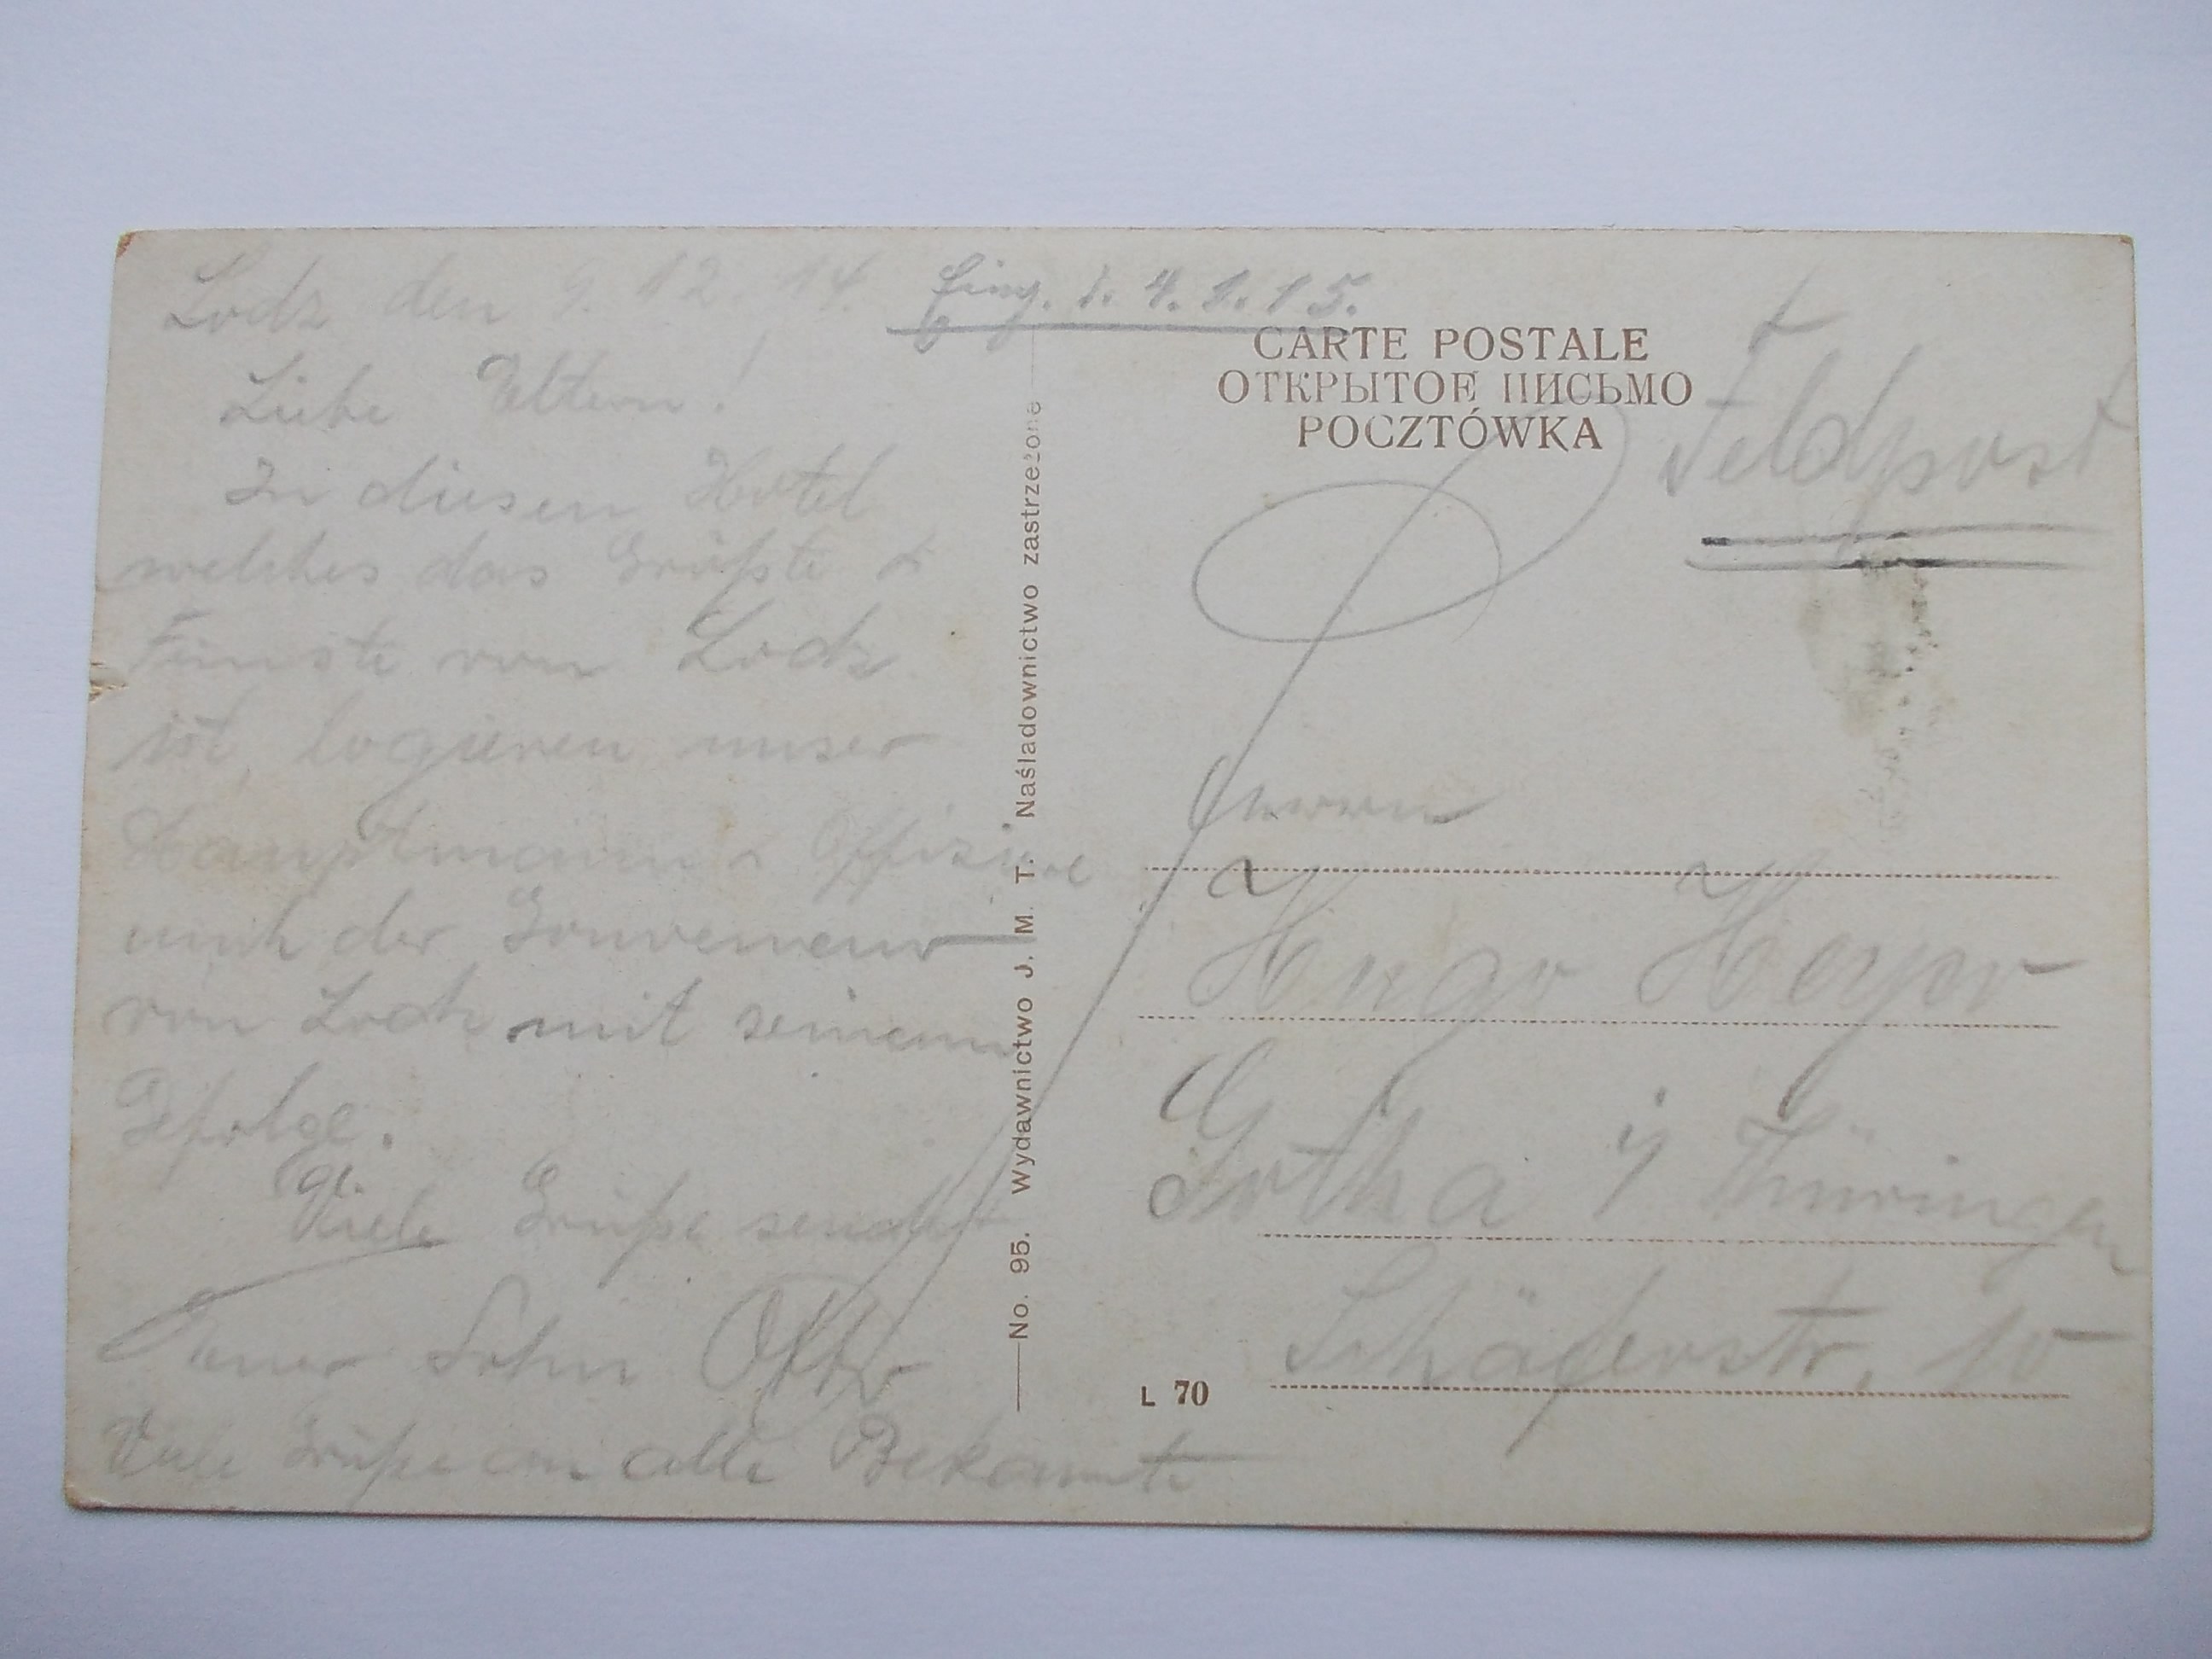 Lodz den 9. 12. 14.
Eing. d. 4. 1. 15.
Liebe Eltern!
In diesen Hotel
welches das Größte &
Feinste von Lodz
ist, logieren unser
Hauptmann & Offiziere
auch der Gouverneur
von Lodz mit seinem
Gefolge.
Viele Grüße sendet
Euer Sohn Otto
Viele Grüße an alle Bekannte
No. 95. Wydawnictwo J. M. T. Naśladownictwo zastrzeżone
CARTE POSTALE
ОТКРЫТОЕ ПИСЬМО
POCZTÓWKA
Feldpost
Herrn
Hugo Heyer
Gotha i/ Thüringen
Schäferstr. 10
L 70